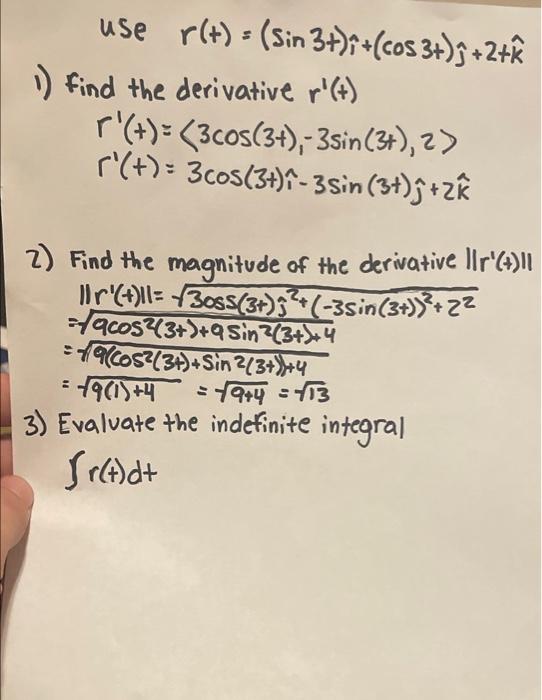 use r(t) = (sin 3t)î+(cos 3t)ĵ +2tk̂
1) find the derivative r'(t)
r'(t)= <3cos(3t),-3sin(3t), 2>
r'(t)= 3cos(3t)î-3sin(3t)ĵ+2k̂
2) Find the magnitude of the derivative ||r'(t)||
||r'(t)||= √3oss(3t)ĵ²+(-3sin(3t))²+2²
=√9cos²(3t)+9sin²(3t)+4
=√9(cos²(3t)+sin²(3t))+4
= √9(1)+4 = √9+4 = √13
3) Evaluate the indefinite integral
∫r(t)dt